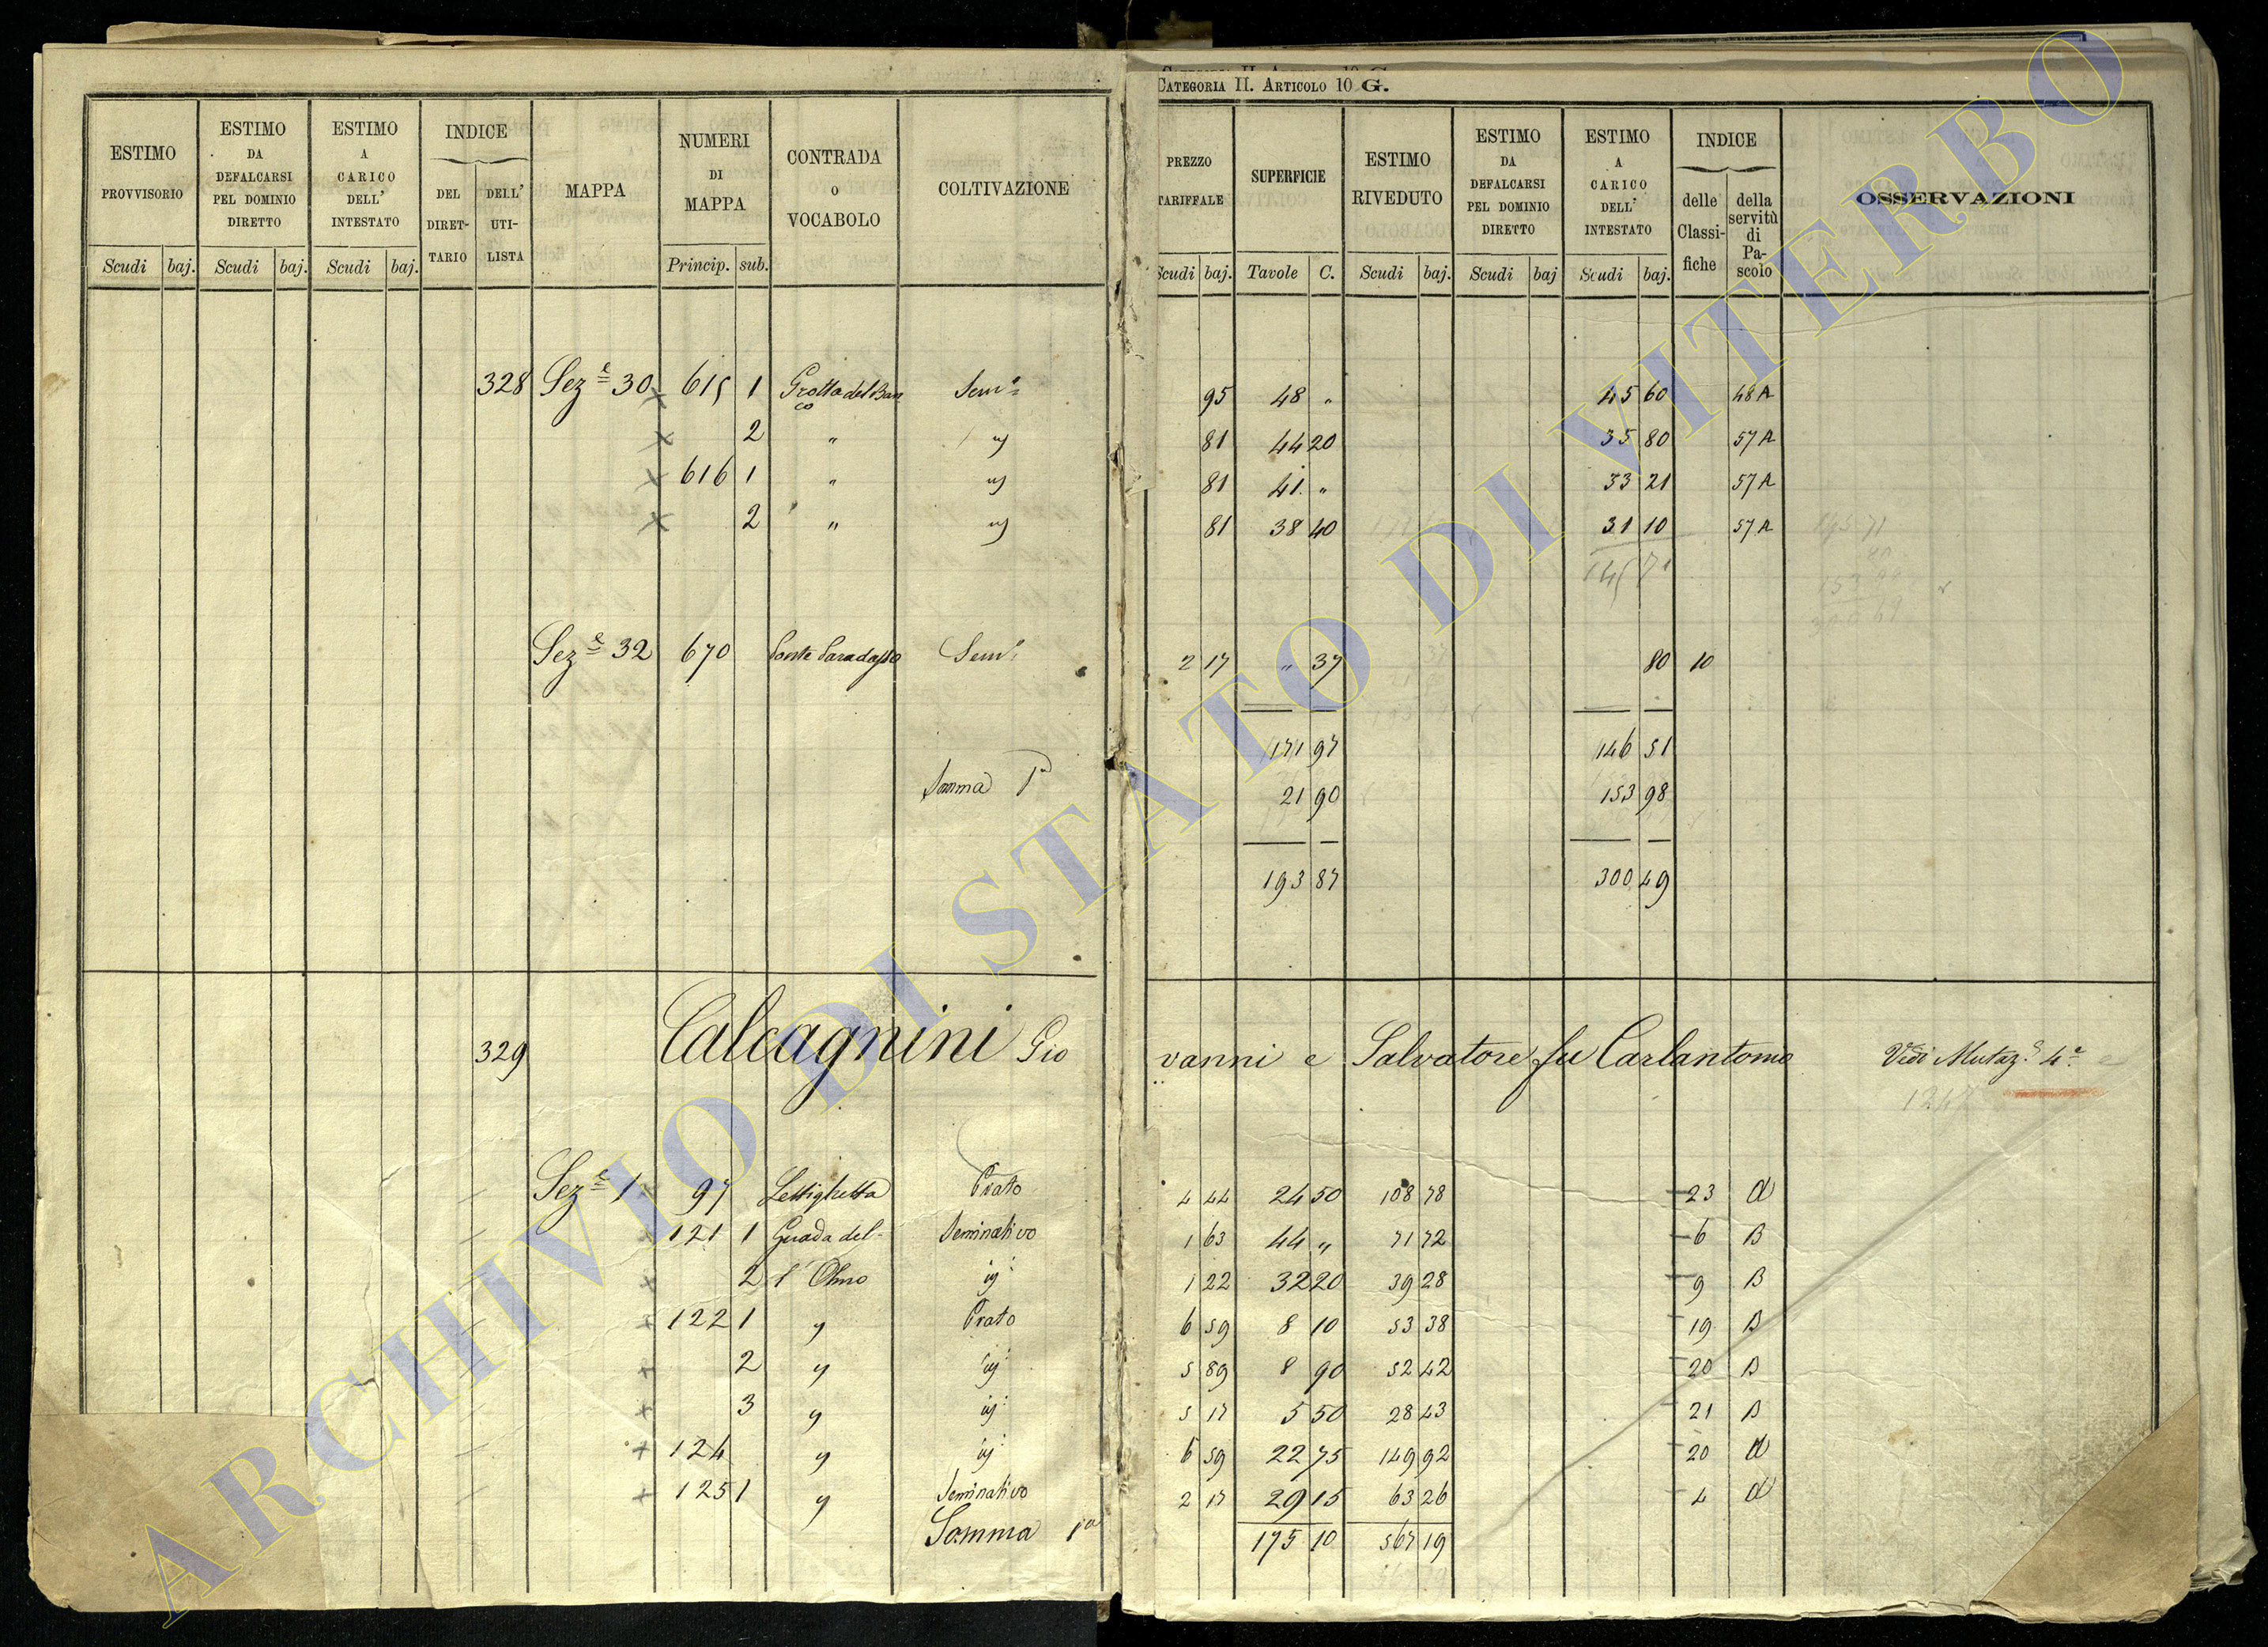 CATEGORIA II. ARTICOLO 10 G.
ESTIMO PROVVISORIO
ESTIMO DA DEFALCARSI PEL DOMINIO DIRETTO
ESTIMO A CARICO DELL' INTESTATO
INDICE
DEL DIRETTARIO
DELL' UTILISTA
MAPPA
NUMERI DI MAPPA
CONTRADA O VOCABOLO
COLTIVAZIONE
PREZZO TARIFFALE
SUPERFICIE
ESTIMO RIVEDUTO
ESTIMO DA DEFALCARSI PEL DOMINIO DIRETTO
ESTIMO A CARICO DELL' INTESTATO
INDICE
delle Classifiche
della servitù di Pascolo
OSSERVAZIONI
Scudi baj. Scudi baj. Scudi baj. Princip. sub. Scudi baj. Tavole C. Scudi baj. Scudi baj Scudi baj.
328 Sez.e 30 615 1 Grotta del Banco Sem.o 95 48 " 45 60 48 A
2 " 81 44 20 35 80 57 A
616 1 " 81 41 " 33 21 57 A
2 " 81 38 40 31 10 57 A
145 71
Sez.e 32 670 Sem.o 2 17 " 37 80 10
171 97 146 51
Somma 1a 21 90 153 98
193 87 300 49
329 Calcagnini Giovanni e Salvatore fu Carlantonio Vedi Mutaz.e 4.a
Sez.e 1 97 Lettighetta Prato 4 44 24 50 108 78 23 A
121 1 Guada del- Seminativo 1 63 44 " 71 72 6 B
2 l'Olmo 1 22 32 20 39 28 9 B
122 1 Prato 6 59 8 10 53 38 19 B
2 5 89 8 90 52 42 20 B
3 5 17 5 50 28 43 21 B
124 6 59 22 75 149 92 20 A
125 1 Seminativo 2 17 29 15 63 26 4 A
Somma 1a 175 10 567 19
ARCHIVIO DI STATO DI VITERBO